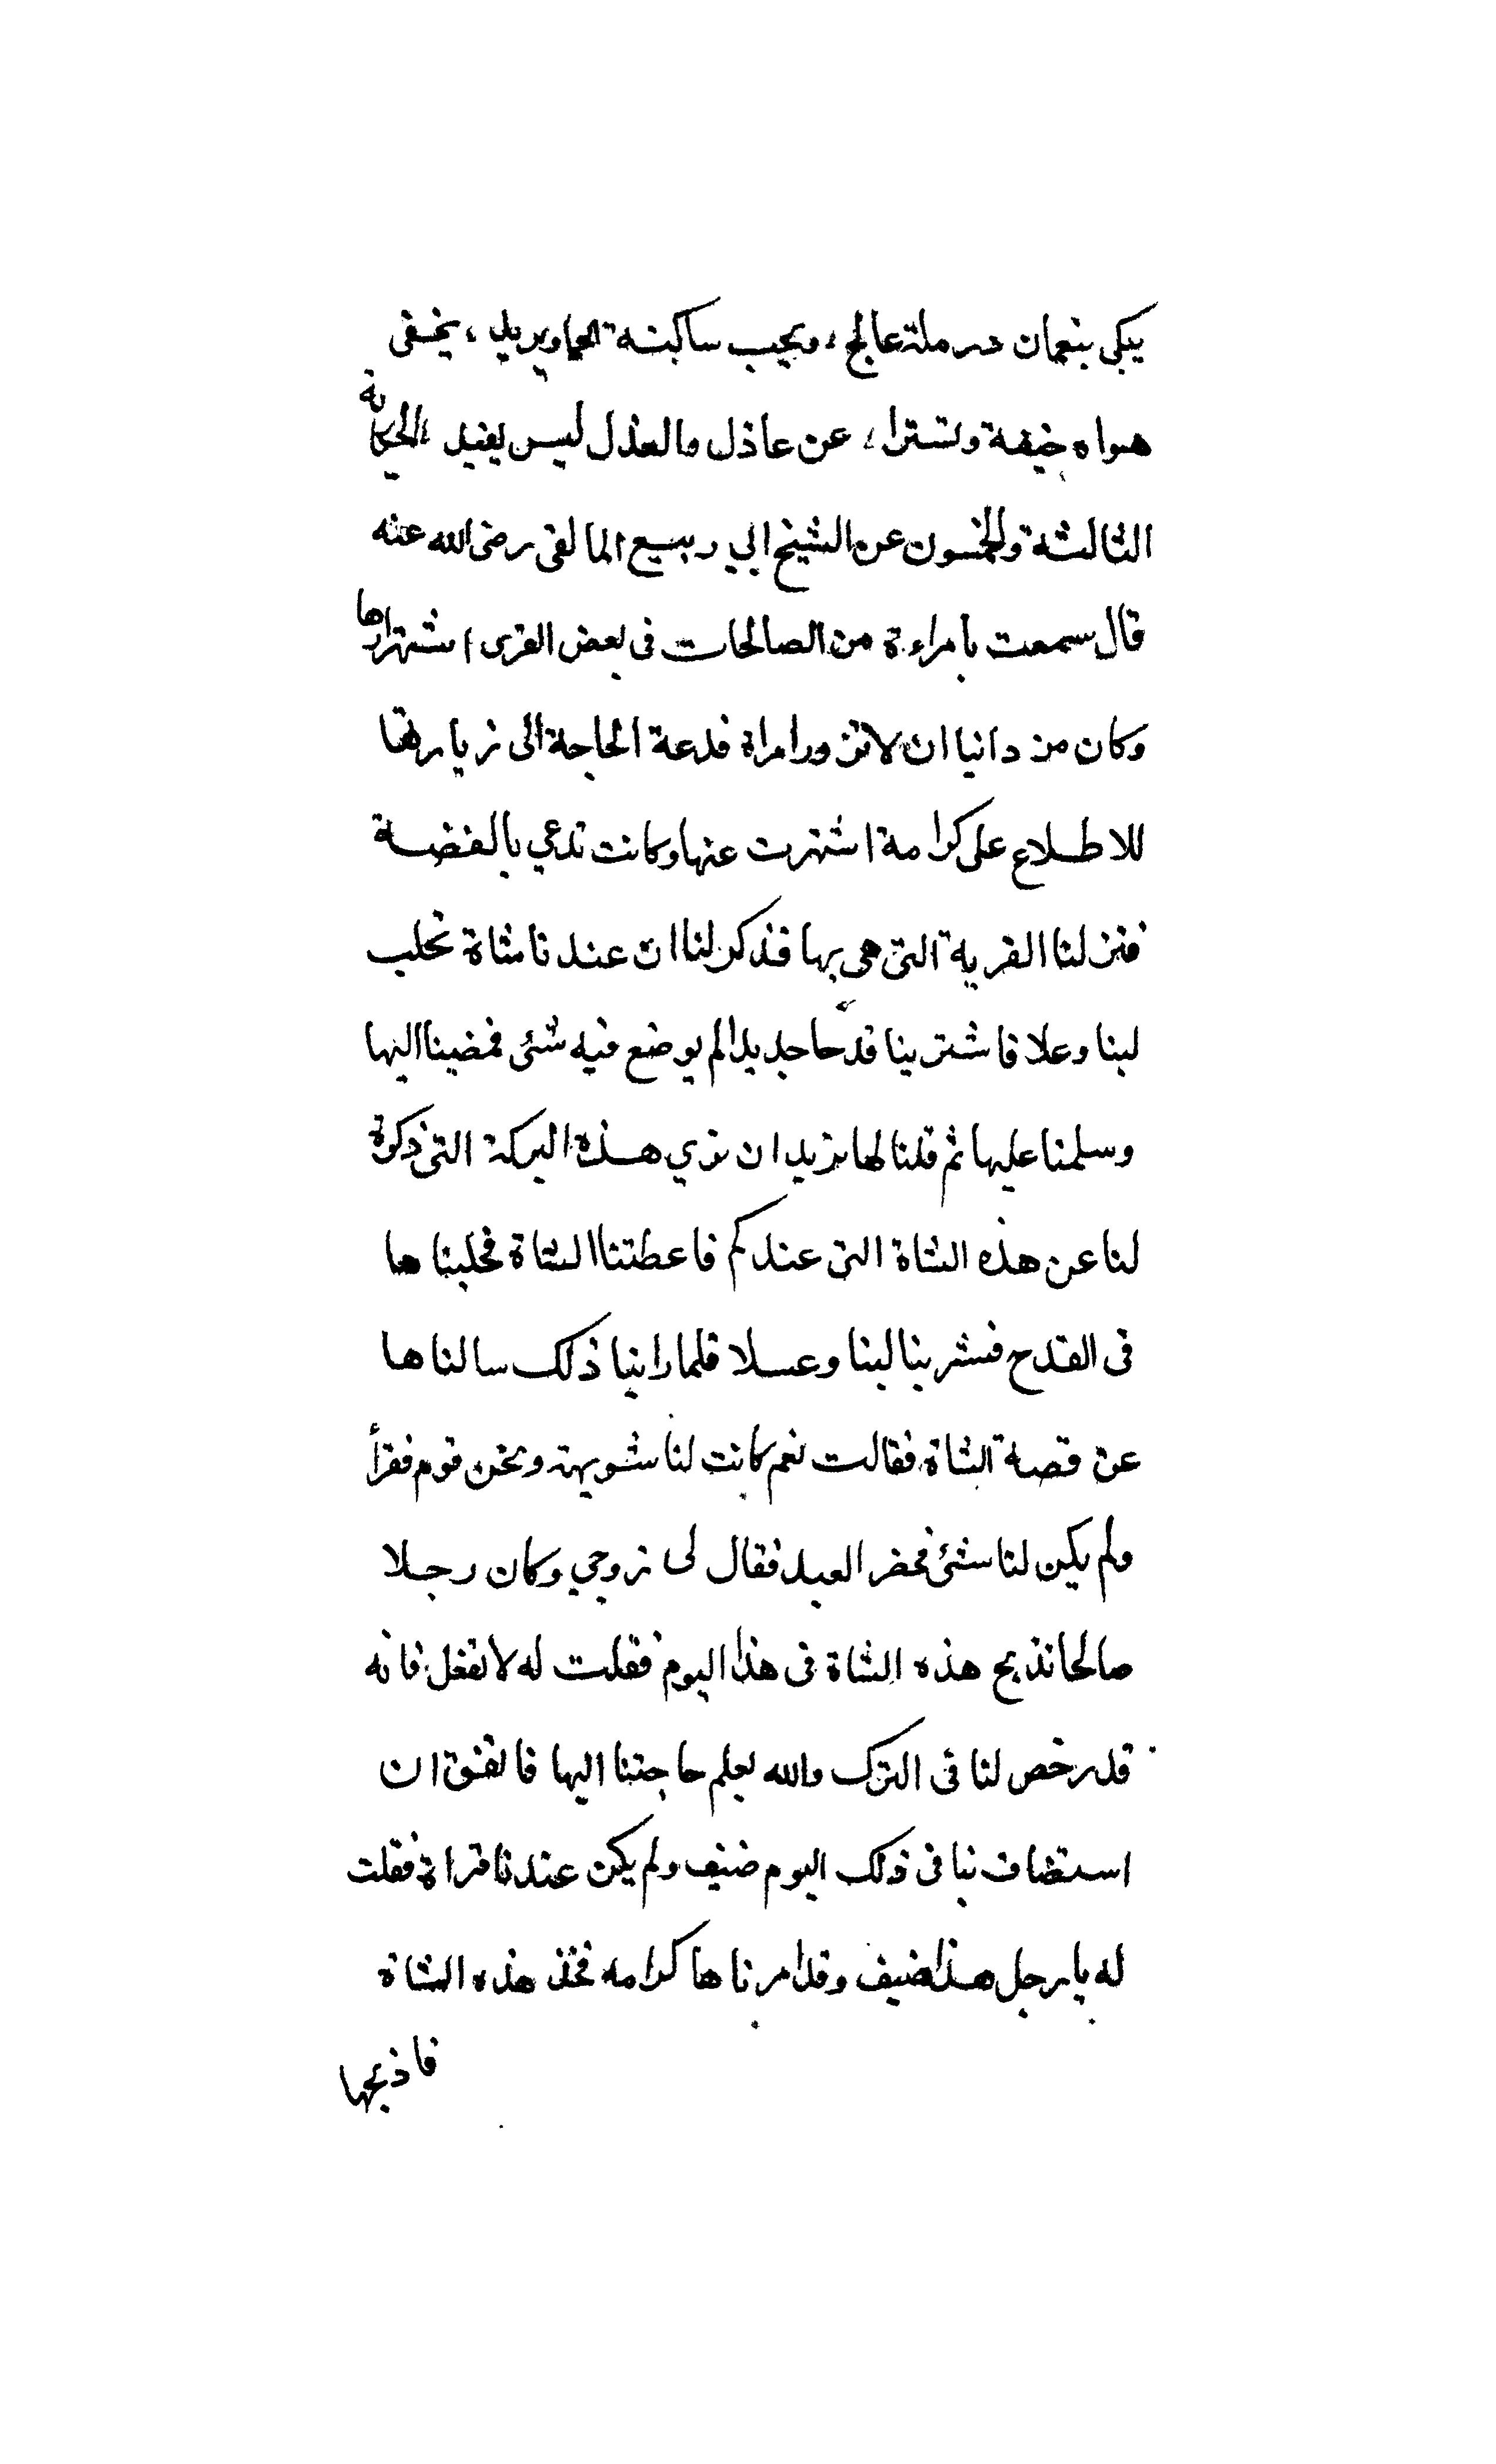 يبكي بنعمان در ملة عالج، ويحب ساكنة الحما ويريد، يخفى
هواه خيفة وتسترا، عن عاذل مالعذل ليس يفيد، الحكاية
الثالثة والخمسون عن الشيخ ابي ربيع المالقى رضى الله عنه
قال سمعت بامراءة من الصالحات فى بعض القرى اشتهر امرها
وكان من دانيا ان لا تزورا مراة فدعة الحاجة الى زيارتها
للاطلاع على كرامة اشتهرت عنها وكانت تدعي بالفضة
فنزلنا القرية التى هى بها فذكر لنا ان عندنا شاة تحلب
لبنا وعلا فاشترينا قدحا جديدا لم يوضع فيه شئى فمضينا اليها
وسلمنا عليها ثم قلنا لها نريد ان نري هذه البركة التى ذكرة
لنا عن هذه الشاة التى عندكم فاعطتنا الشاة فحلبنا ها
فى القدح فشربنا لبنا وعسلا فلما راينا ذلك سالناها
عن قصة الشاة فقالت نعم كانت لنا شويهة ونحن قوم فقرأ
ولم يكن لنا شئى فحضر العيد فقال لى زوجي وكان رجلا
صالحا نذبح هذه الشاة فى هذا اليوم فقلت له لا تفعل فانه
قد رخص لنا فى الترك والله يعلم حاجتنا اليها فاتفق ان
استضاف بنا فى ذلك اليوم ضيف ولم يكن عندنا قراة فقلت
له يا رجل هذا ضيف وقد امرنا ها كرامه فخذ هذه الشاة
فاذبحها